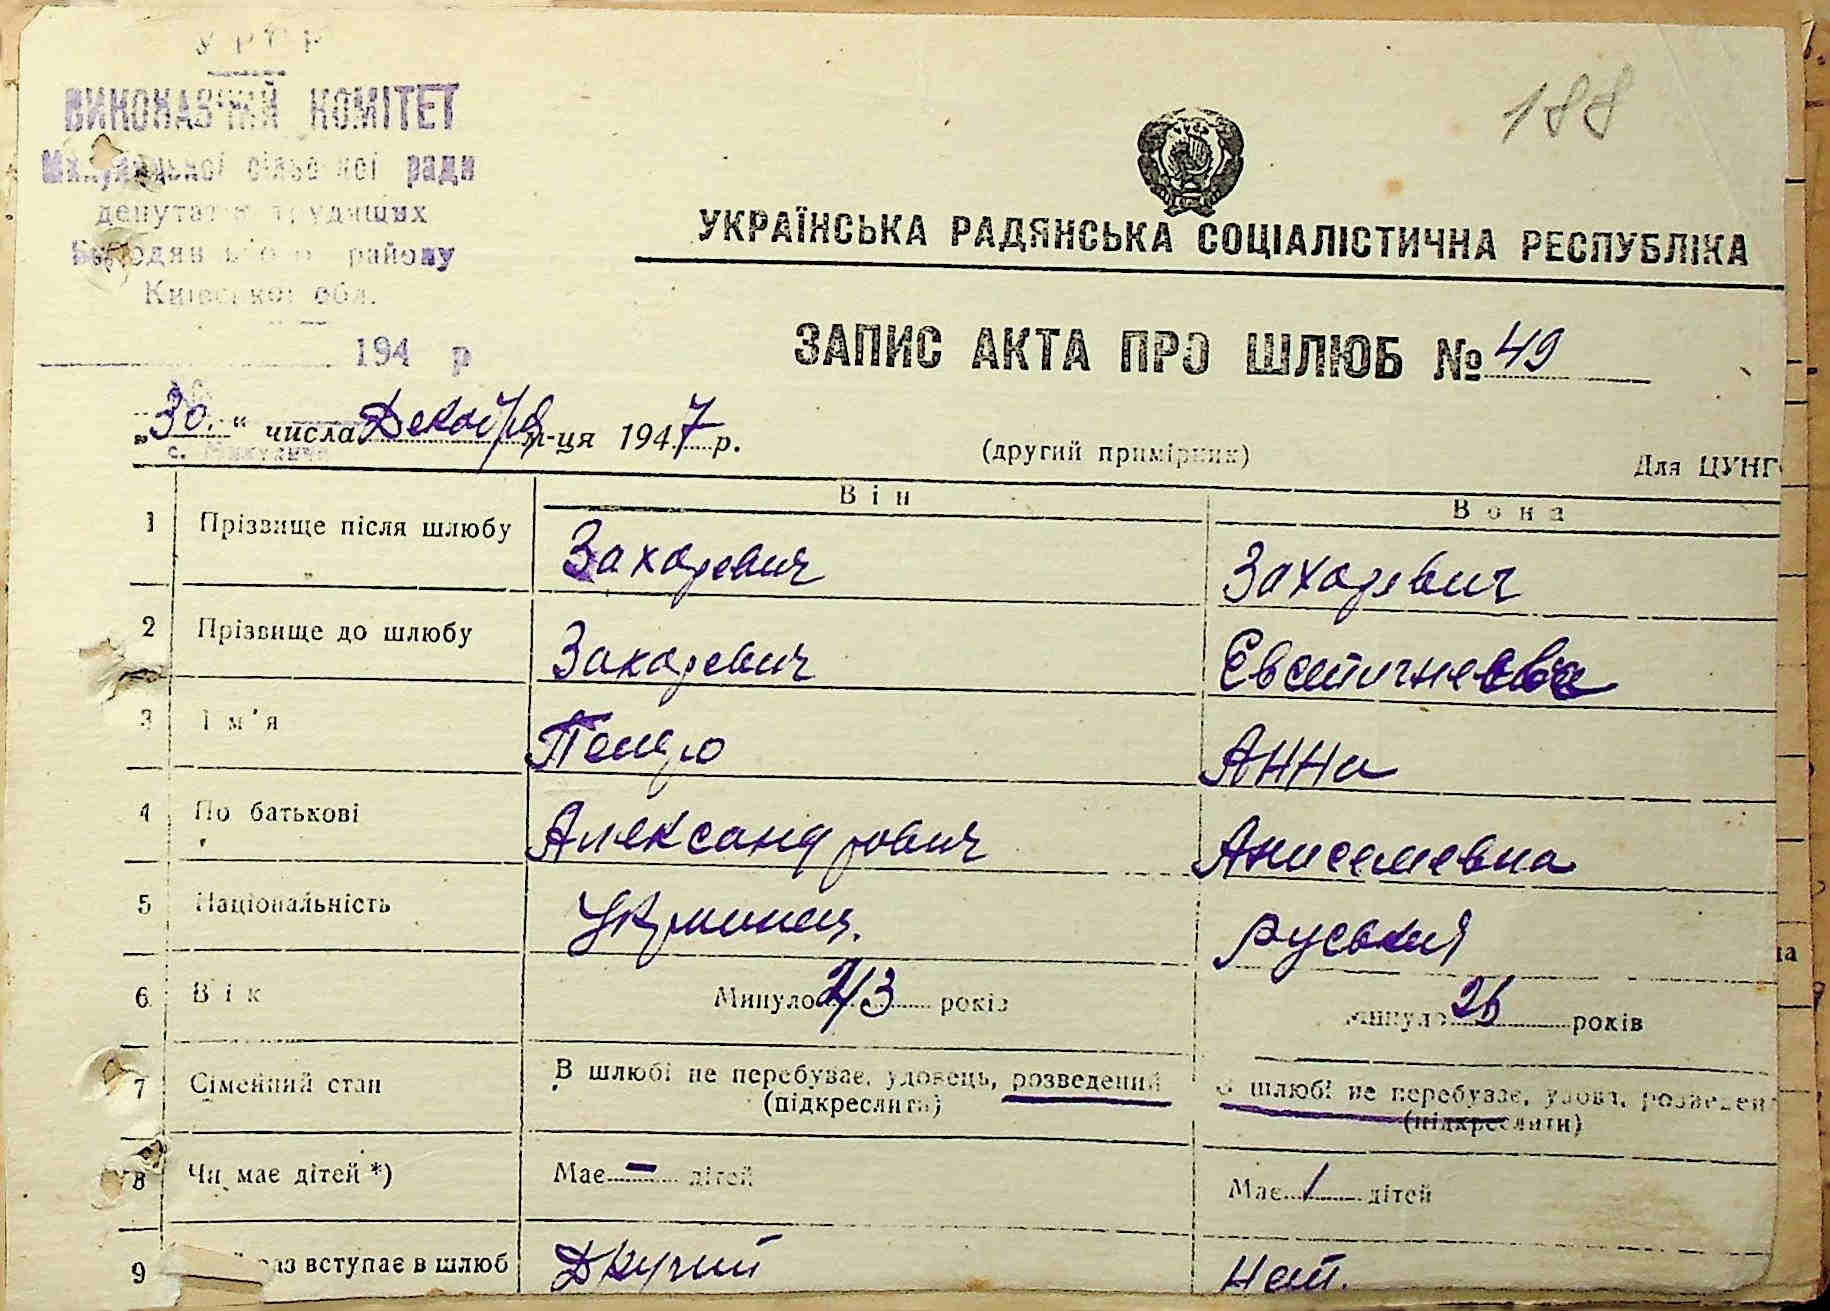 УРСР
ВИКОНАВЧИЙ КОМІТЕТ
Микулицької сільської ради
депутатів трудящих
Бородянського району
Київської обл.
194 р
188
УКРАЇНСЬКА РАДЯНСЬКА СОЦІАЛІСТИЧНА РЕСПУБЛІКА
ЗАПИС АКТА ПРО ШЛЮБ № 49
„30." числа Декабря м-ця 1947 р.
с. Микуличі
(другий примірник)
Для ЦУНГ
Він
Вона
1 Прізвище після шлюбу Захаревич Захаревич
2 Прізвище до шлюбу Захаревич
3 Ім'я Петро Анна
4 По батькові Александрович Анисемевна
5 Національність Украинец. руський
6 Вік Минуло 23 років минуло 26 років
7 Сімейний стан В шлюбі не перебуває, удовець, розведений В шлюбі не перебуває, удова, розведен
(підкреслити) (підкреслити)
8 Чи має дітей *) Має – дітей Має 1 дітей
9 раз вступає в шлюб Другий Нет.